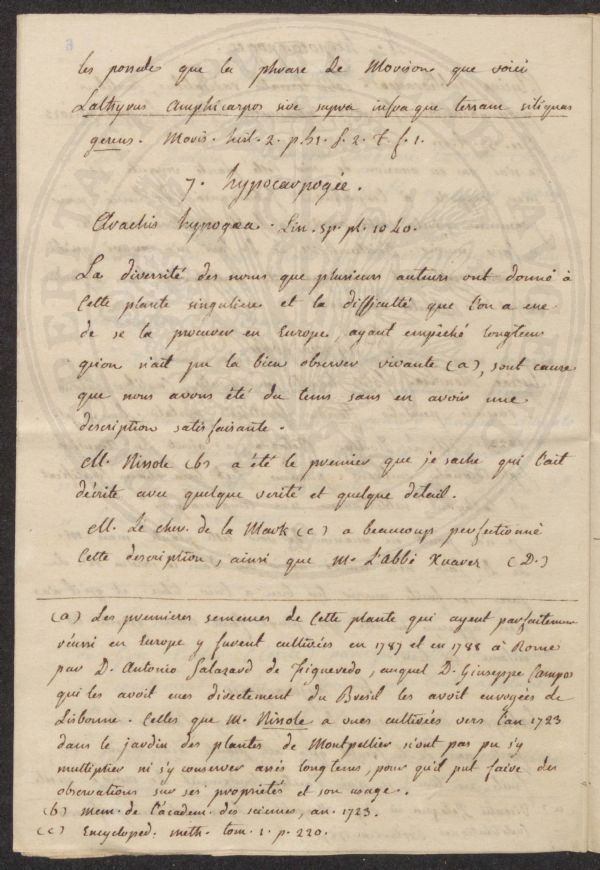 les possede que la phrase de Morison que voici
Lathyrus Amphicarpos sive supra infraque terram siliquas
gerens. Moris. hist. 2. p. 51. f. 2. t. f. 1.
7. hypocarpogée.
Arachis hypogæa. Lin. sp. pl. 1040.
La diversité des noms que plusieurs auteurs ont donné à
Cette plante singuliere et la difficulté que l'on a eue
de se la procurer en Europe, ayant empêché longtems
qu'on n'ait pu la bien observer vivante (a), sont cause
que nous avons été du tems sans en avoir une
description satisfaisante.
M. Nissole (b) a été le premier que je sache qui l'ait
décrite avec quelque verité et quelque detail.
M. Le chev. de la Mark (c) a beaucoup perfectionné
Cette description, ainsi que Mr. L'Abbé Xuarez (D.)
(a) Les premieres semences de Cette plante qui ayent parfaitement
réussi en Europe y furent cultivées en 1787 et en 1788 à Rome
par D. Antonio Salazard de Figuevedo, auquel D. Giuseppe Campos
qui les avoit eues directement du Bresil les avoit envoyées de
Lisbonne. Celles que Mr. Nissole a vues cultivées vers l'an 1723
dans le jardin des plantes de Montpellier n'ont pas pu s'y
multiplier ni s'y conserver assés longtems, pour qu'il put faire des
observations sur ses propriétés et son usage.
(b) mem. de l'academ. des sciences, an. 1723.
(c) Encycloped. meth. tom. 1. p. 220.